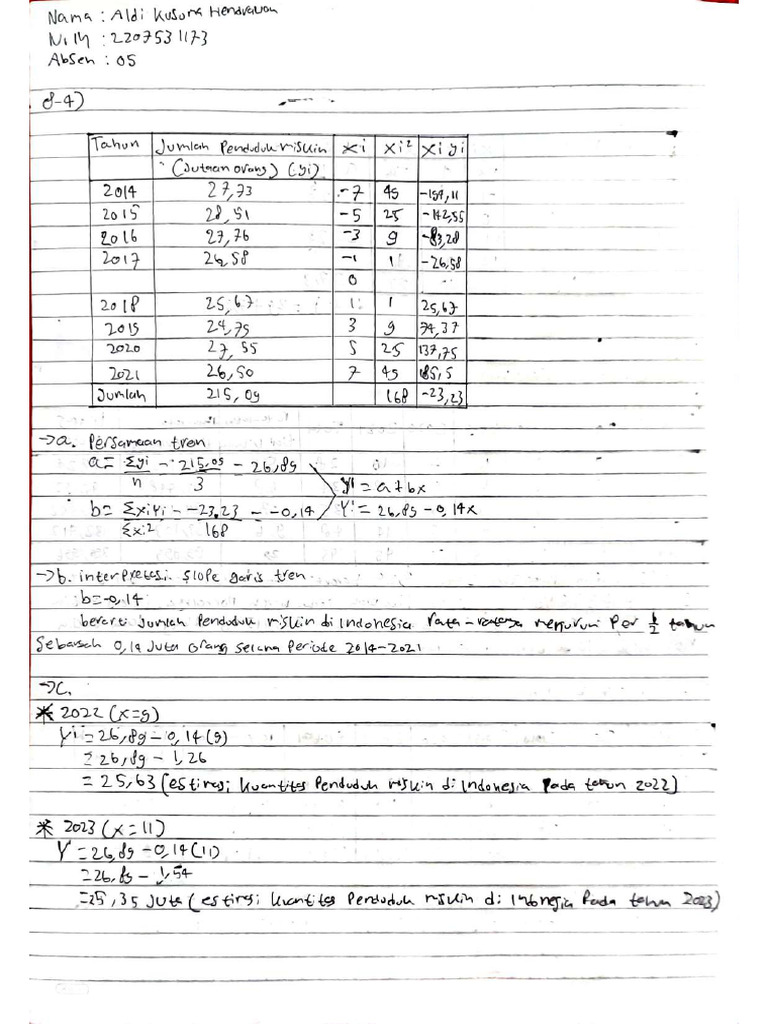 Nama : Aldi Kusuma Hendrawan
NIM : 2207531173
Absen : 05
8-4)
Tahun Jumlah Penduduk Miskin xi xi² xi yi
(Jutaan orang) (yi)
2014 27,73 -7 49 -194,11
2015 28,51 -5 25 -142,55
2016 27,76 -3 9 -83,28
2017 26,58 -1 1 -26,58
0
2018 25,67 1 1 25,67
2019 24,79 3 9 74,37
2020 27,55 5 25 137,75
2021 26,50 7 49 185,5
Jumlah 215,09 168 -23,23
→a. Persamaan tren
a = Σyi = 215,09 = 26,89
n 3
Y' = a + bx
b = Σxiyi = -23,23 = -0,14 Y' = 26,89 - 0,14x
Σxi² 168
→b. interpretasi slope garis tren
b=-0,14
berarti jumlah Penduduk miskin di Indonesia rata-ratanya menurun Per ½ tahun
Sebesar 0,14 Juta orang selama Periode 2014-2021
→c.
* 2022 (x=9)
Yi = 26,89 - 0,14 (9)
= 26,89 - 1,26
= 25,63 (estimasi kuantitas Penduduk miskin di Indonesia Pada tahun 2022)
* 2023 (x=11)
Y' = 26,89 - 0,14 (11)
= 26,89 - 1,54
= 25,35 Juta (estimasi kuantitas Penduduk miskin di Indonesia Pada tahun 2023)